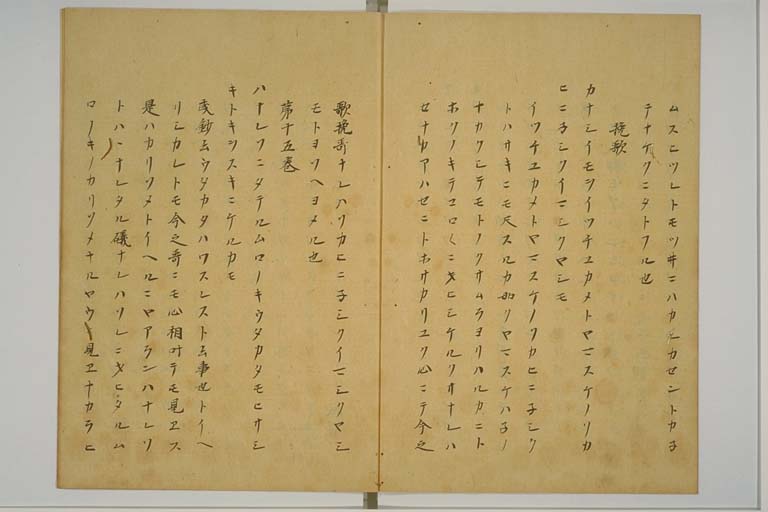 ムスヒツレトモツヰニハカレカセントカ子
テナケクニタトフル也
挽歌
カナシイモヲイツチユカメトヤマスケノソカ
ヒニ子シクイマシクヤシモ
イツチユカメトヤマスケノソカヒニ子シク
トハサキニモ尺スルカ如クヤマスケハ子ノ
ナカクシテモトノクサムラヨリハルカニト
ホソノキテコロ〱ニオヒシケルソナレハ
セナカアハセニトホサカリユク心ニテ今之
歌挽哥ナレハソカヒニ子シクイマシクヤシ
モトヨソヘヨメル也
第十五巻
ハナレソニタテルムロノキウタカタモヒサシ
キトキヲスキニケルカモ
愛鈔云ウタカタハワスレスト云事也トイヘ
リシカレトモ今之哥ニモ心相叶テモ見ヱス
是ハカリソメトイヘルニヤアランハナレソ
トハハナレタル礒ナレハソレニオヒタルム
ロノキノカリソメナルヤウニ見ヱナカラヒ